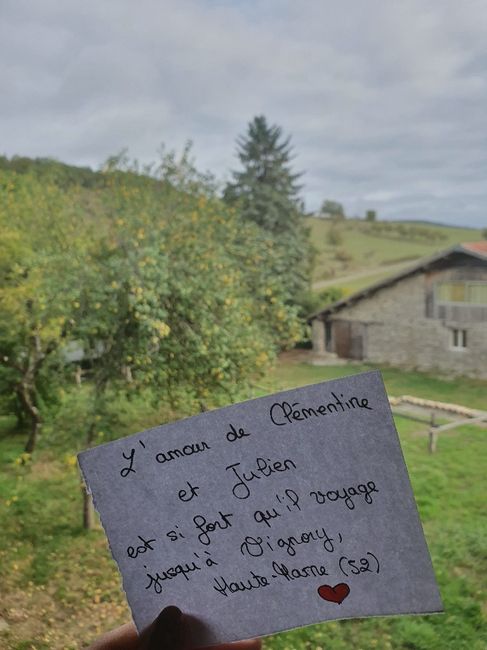 L'amour de Clémentine
et Julien
est si fort qu'il voyage
jusqu'à Vignory,
Haute-Marne (52)